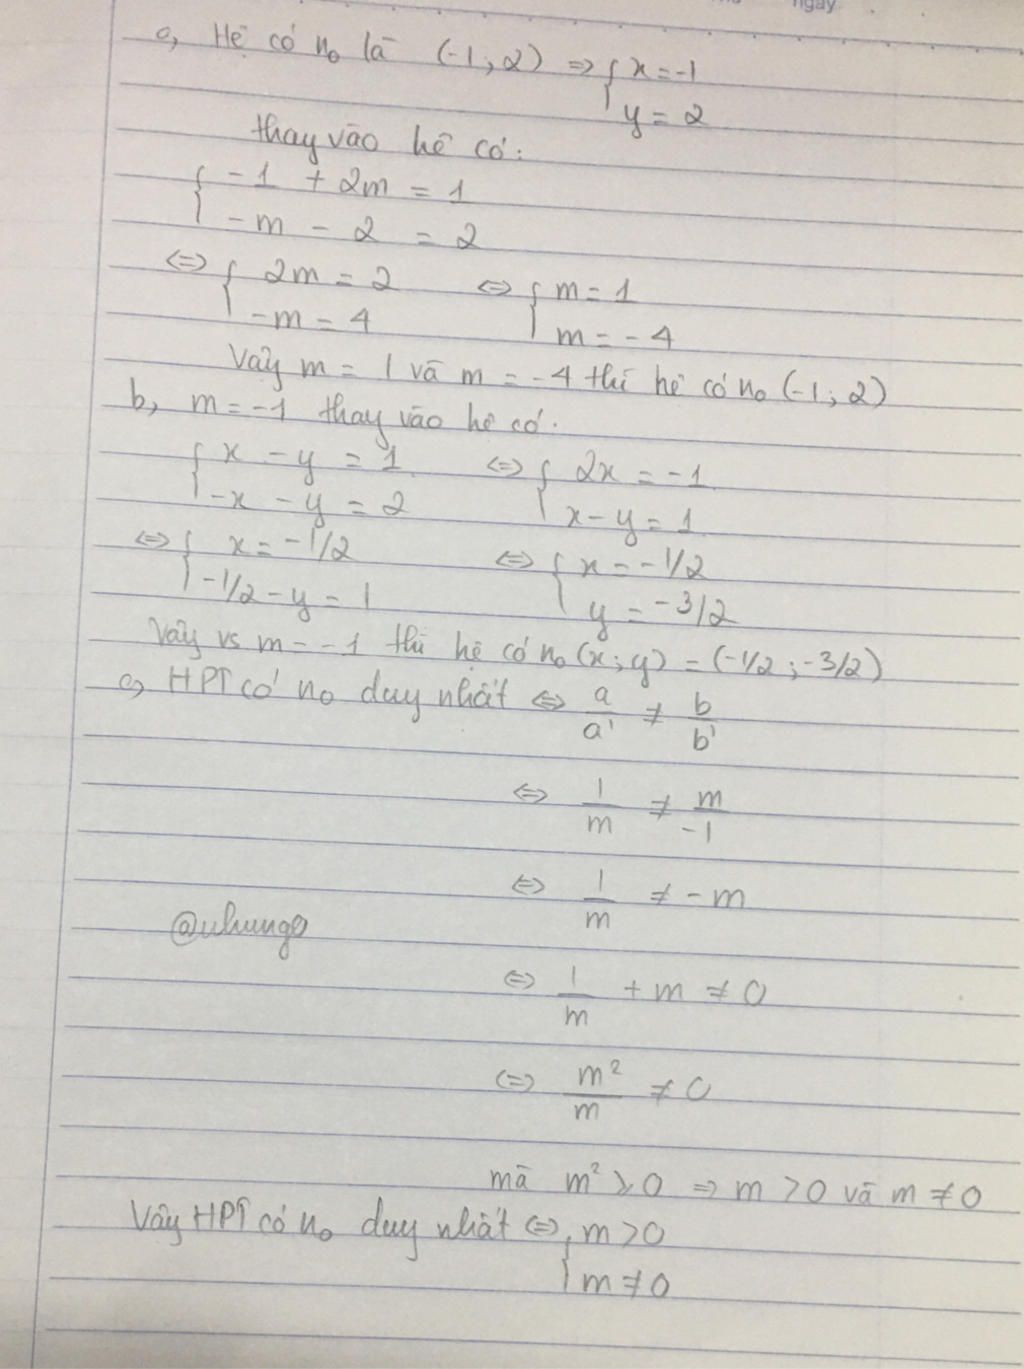 ngày
a, Hệ có n₀ là (-1; 2) ⇒ { x = -1
y = 2
thay vào hệ có:
{ -1 + 2m = 1
-m - 2 = 2
⇔ { 2m = 2 ⇔ { m = 1
-m = 4 m = -4
Vậy m = 1 và m = -4 thì hệ có n₀ (-1; 2)
b, m = -1 thay vào hệ có.
{ x - y = 1 ⇔ { 2x = -1
-x - y = 2 x - y = 1
⇔ { x = -1/2 ⇔ { x = -1/2
-1/2 - y = 1 y = -3/2
Vậy vs m = -1 thì hệ có n₀ (x; y) = (-1/2; -3/2)
c, HPT có n₀ duy nhất ⇔ a/a' ≠ b/b'
⇔ 1/m ≠ m/-1
⇔ 1/m ≠ -m
⇔ 1/m + m ≠ 0
⇔ m²/m ≠ 0
mà m² ≥ 0 ⇒ m > 0 và m ≠ 0
Vậy HPT có n₀ duy nhất ⇔ { m > 0
m ≠ 0